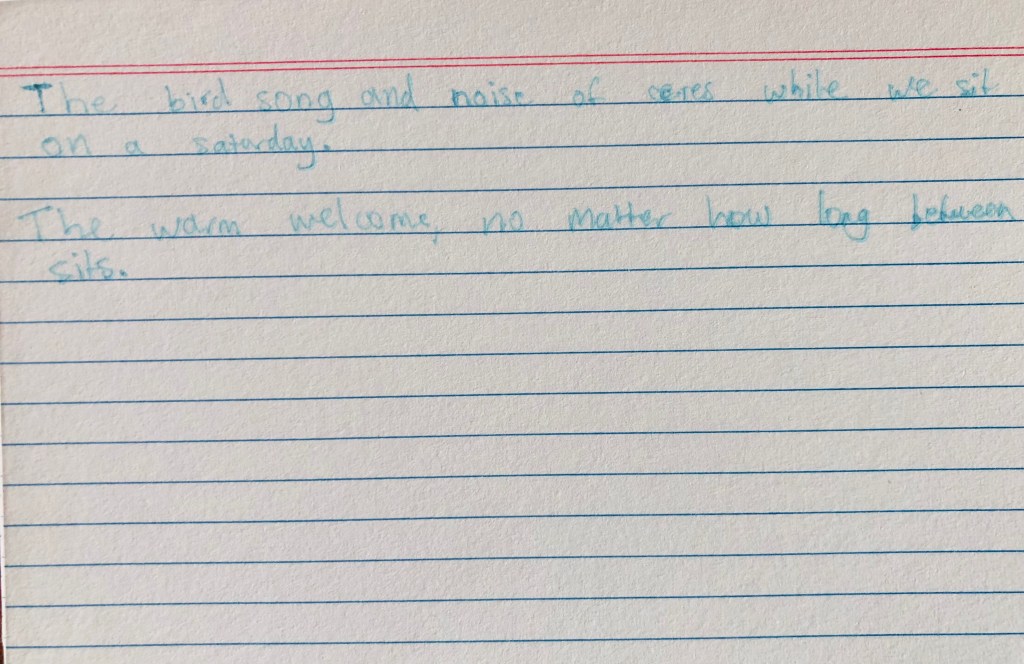 The bird song and noise of ceres while we sit
on a saturday.
The warm welcome, no matter how long between
sits.